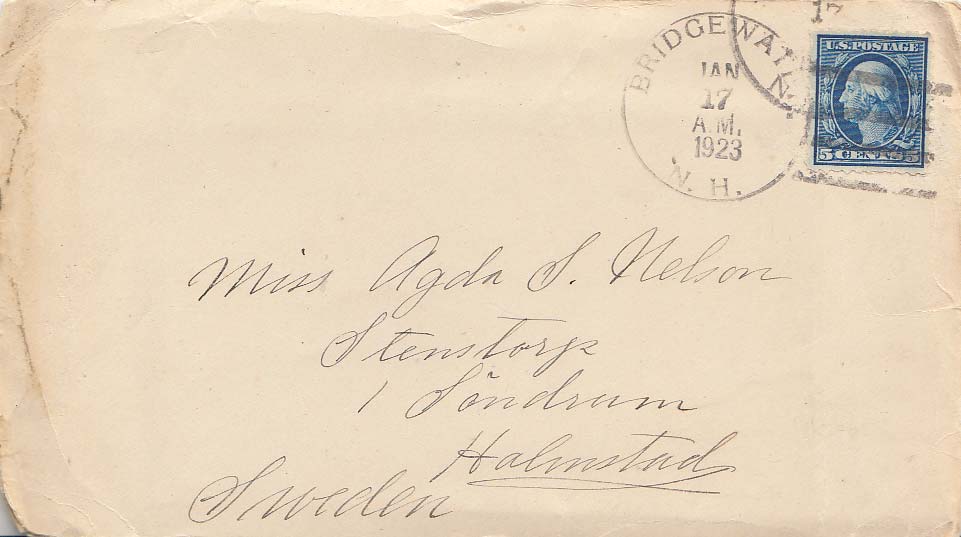 17
BRIDGEWATER
JAN
17
A.M.
1923
N. H.
N.
U.S. POSTAGE
5 CENTS 5
Miss Agda S. Nelson
Stenstorp
1 Söndrum
Halmstad
Sweden